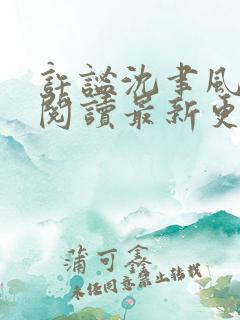 許謐沈聿風
閱讀最新更
蒲可鑫
未经同意禁止转载